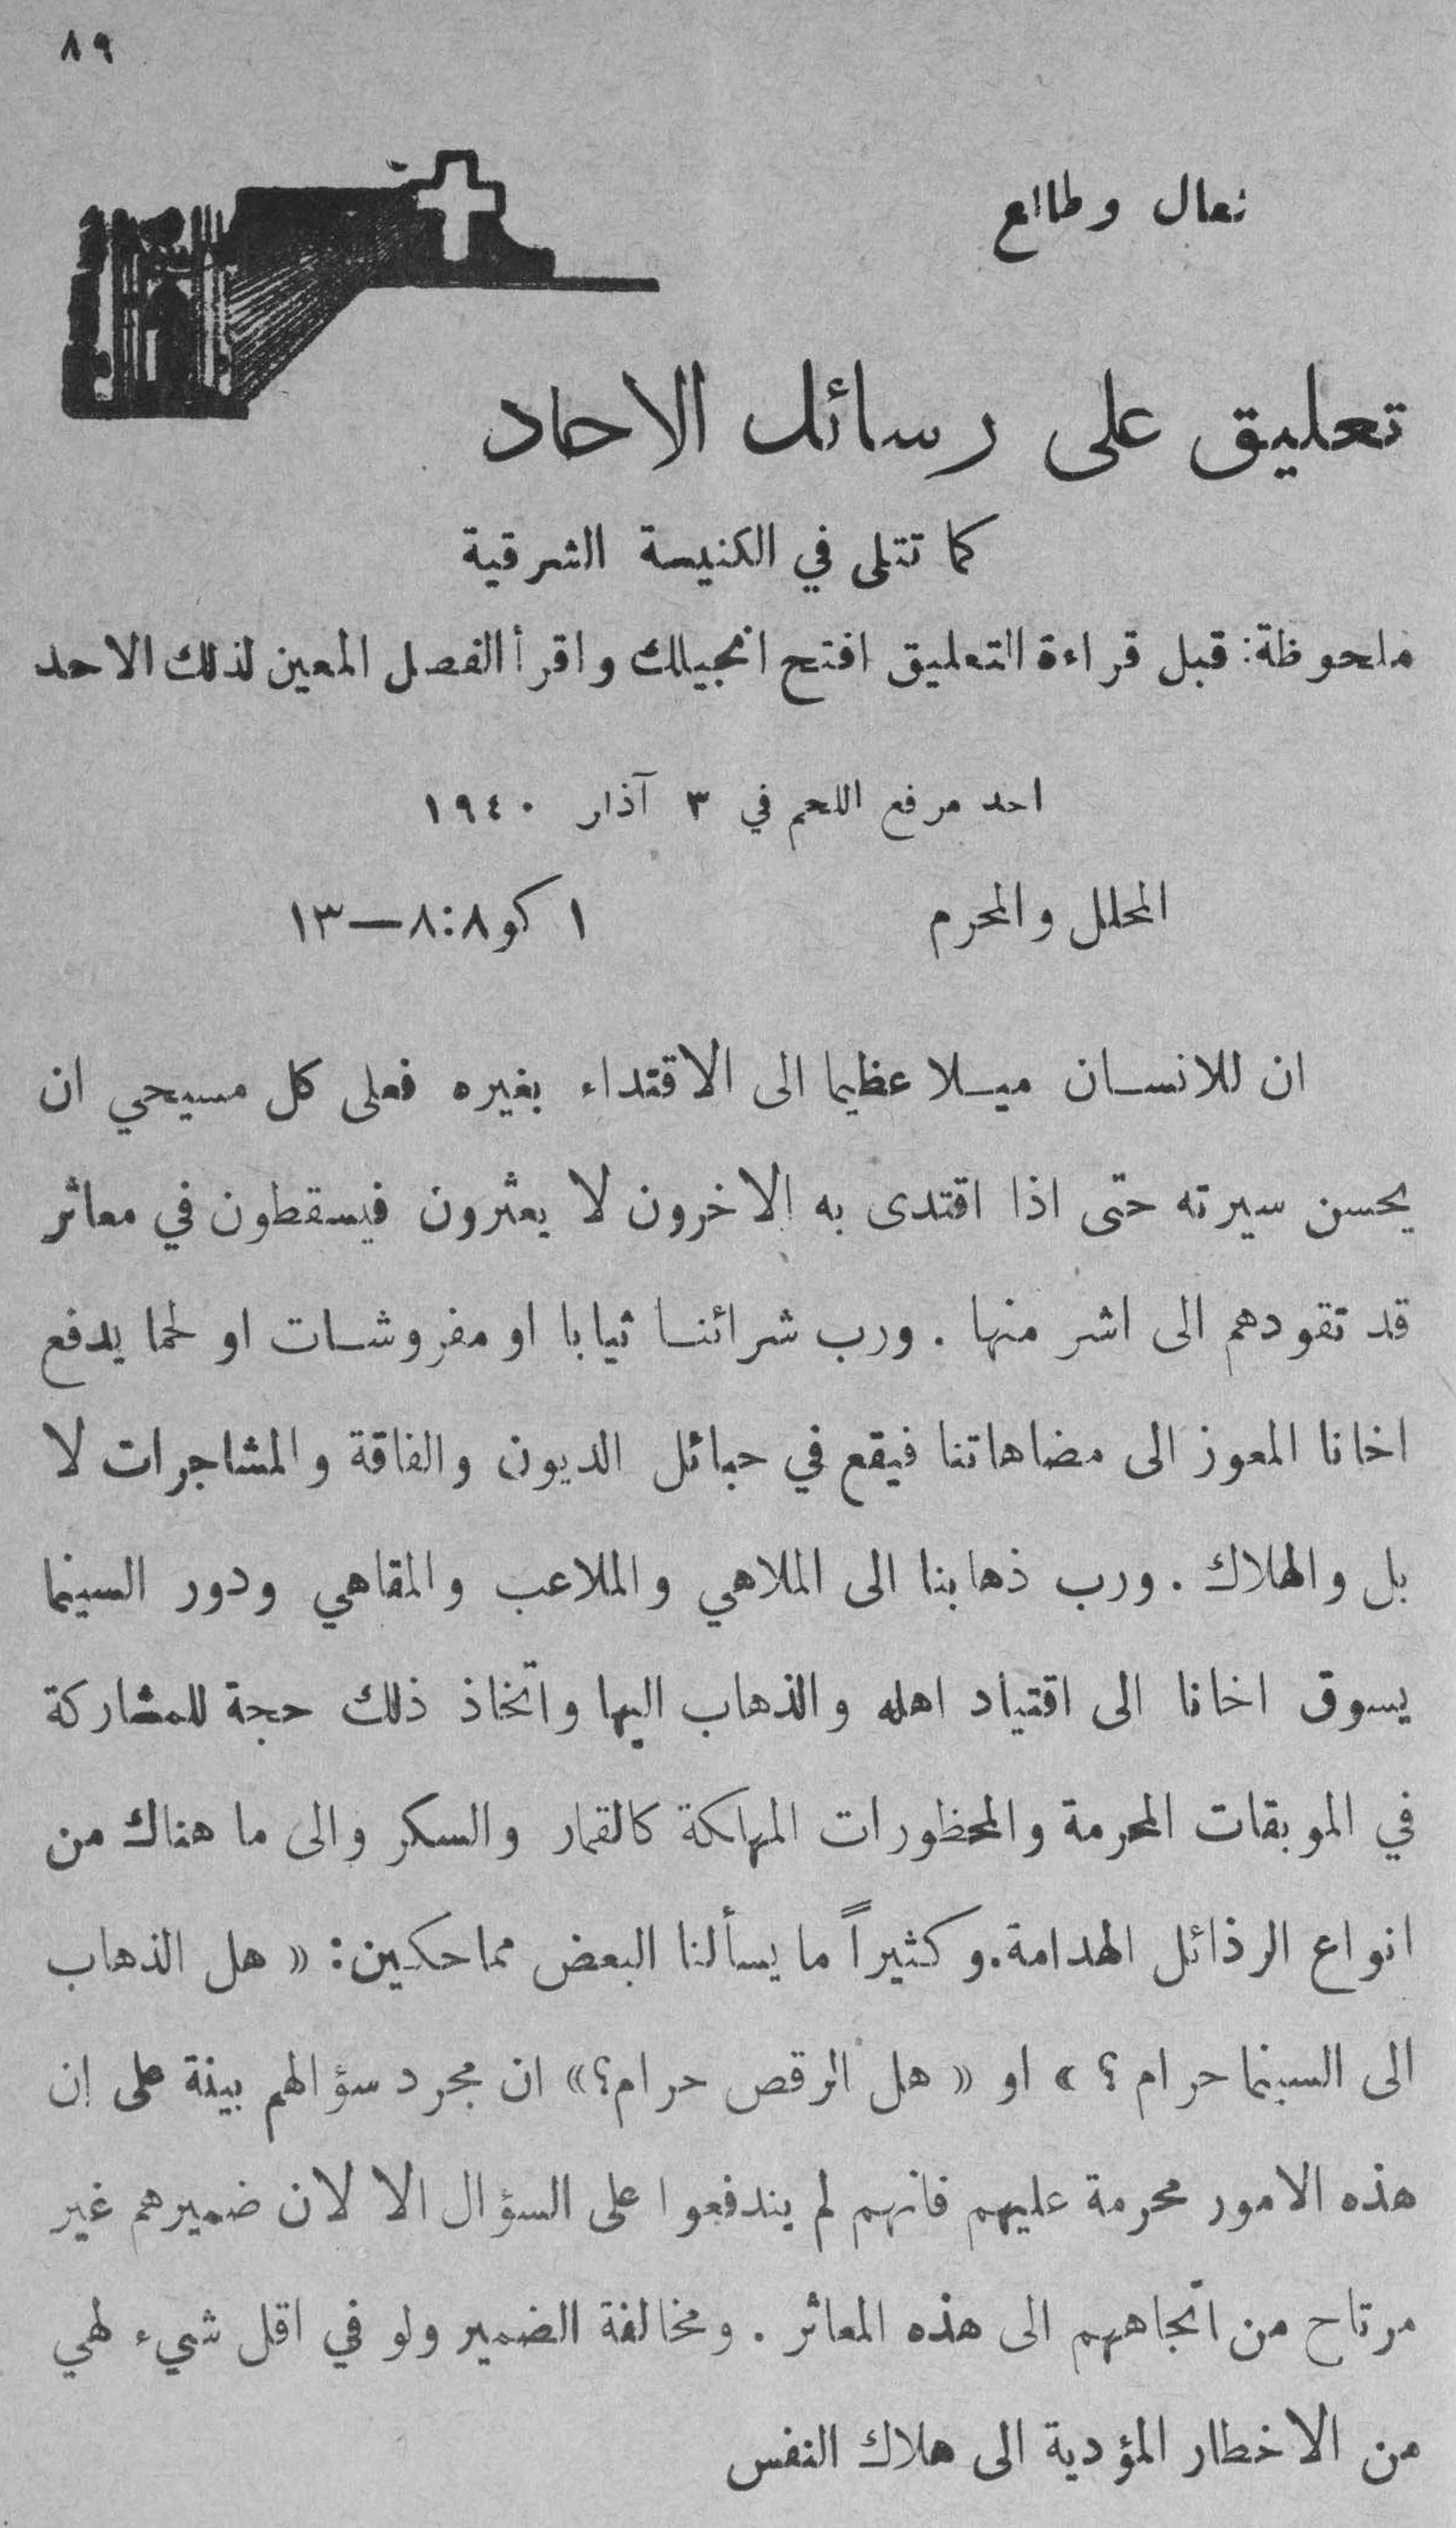 ٨٩
تعال وطالع
تعليق على رسائل الاحاد
كما تتلى في الكنيسة الشرقية
ملحوظة: قبل قراءة التعليق افتح انجيلك واقرأ الفصل المعين لذلك الاحد
احد مرفع اللحم في ٣ آذار ١٩٤٠
المحلل والمحرم ١ كو ٨:٨—١٣
ان للانسان ميلا عظيما الى الاقتداء بغيره فعلى كل مسيحي ان
يحسن سيرته حتى اذا اقتدى به الاخرون لا يعثرون فيسقطون في معاثر
قد تقودهم الى اشر منها . ورب شرائنا ثيابا او مفروشات او لحما يدفع
اخانا المعوز الى مضاهاتنا فيقع في حبائل الديون والفاقة والمشاجرات لا
بل والهلاك . ورب ذهابنا الى الملاهي والملاعب والمقاهي ودور السينما
يسوق اخانا الى اقتياد اهله والذهاب اليها واتخاذ ذلك حجة للمشاركة
في الموبقات المحرمة والمحظورات المهلكة كالقمار والسكر والى ما هناك من
انواع الرذائل الهدامة. وكثيراً ما يسألنا البعض مماحكين: « هل الذهاب
الى السينما حرام ؟ » او « هل الرقص حرام؟» ان مجرد سؤالهم بينة على ان
هذه الامور محرمة عليهم فانهم لم يندفعوا على السؤال الا لان ضميرهم غير
مرتاح من اتجاههم الى هذه المعاثر . ومخالفة الضمير ولو في اقل شيء لهي
من الاخطار المؤدية الى هلاك النفس